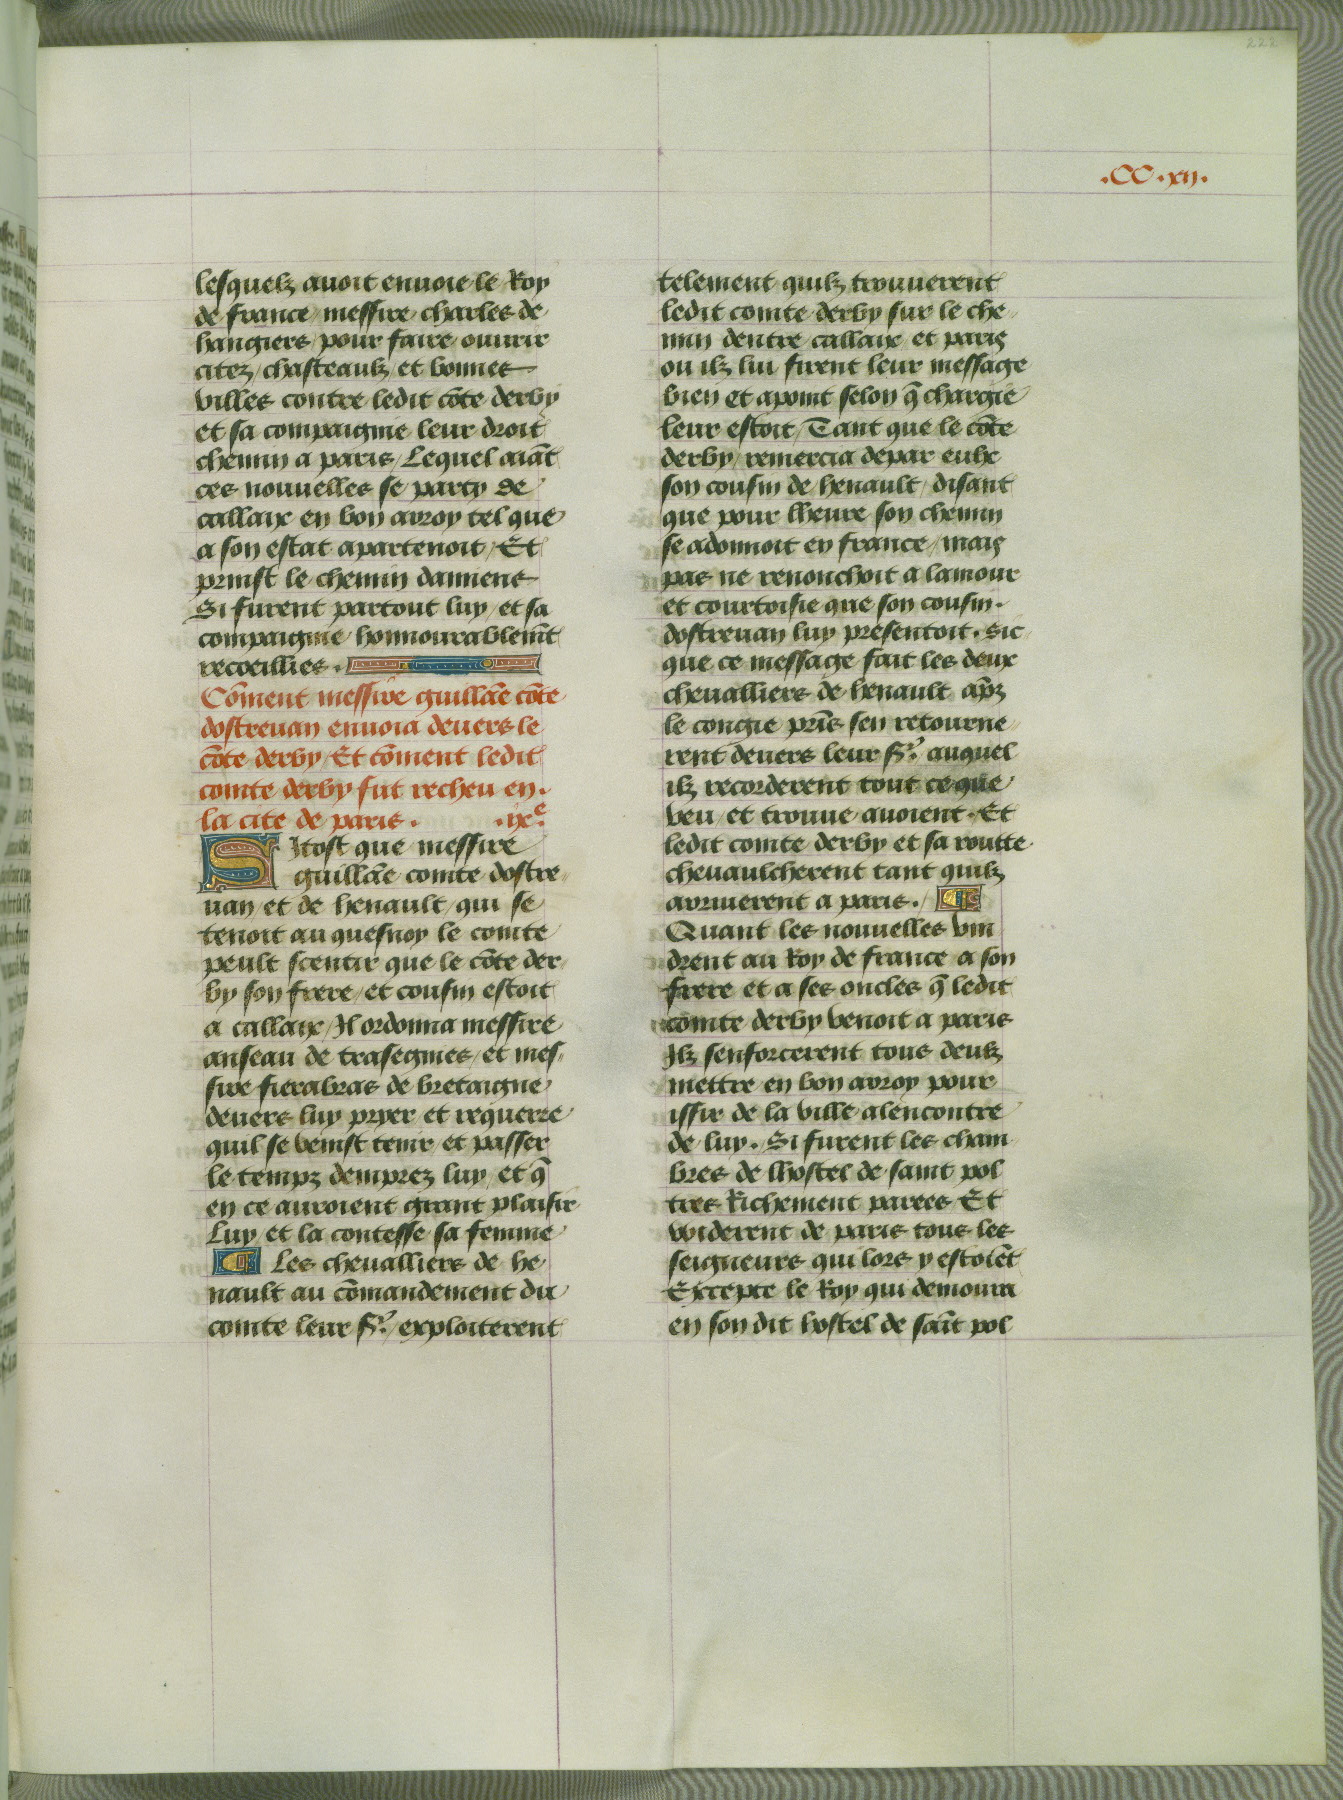 222
.CC.xij.
lesquelz auoit enuoie le Roy
de france / messire charles de
hangiers / pour faire ouurir
citez / chasteaulz et bonnes
villes contre ledit cōte derby
et sa compaignie leur droit
chemin a paris / Lequel aiāt
ces nouuelles se party de
callaix en bon arroy tel que
a son estat apartenoit / Et
prinst le chemin damiens
Si furent partout luy / et sa
compaignie / honnourablemt̄
recoeillies .
Cōment messire guillāe cōte
dostreuan enuoia deuers le
cōte derby Et cōment ledit
comte derby fut recheu en .
la cite de paris . .ixe.
Sitost que messire
guillāe comte dostre
uan et de henault / qui se
tenoit au quesnoy le comte
peult scentir que le cōte der
by son frere / et cousin estoit
a callaix / Il ordonna messire
anseau de trasegnies / et mes
sire fierabras de bretaigne
deuers luy pryer et requerre
quil se venist tenir et passer
le tempz demprez luy / et q̄
en ce auroient grant plaisir
Luy et la contesse sa femme
Les cheualliers de he
nault au cōmandement du
comte leur Sr. / exploiterent
telement quilz trouuerent
ledit comte derby sur le che
min dentre callaix et paris
ou ilz lui firent leur message
bien et apoint selon q̄ chargie
leur estoit / Tant que le cōte
derby / remercia depar eulx
son cousin de henault / disant
que pour lheure son chemin
se adonnoit en france / mais
pas ne renonchoit a lamour
et courtoisie que son cousin .
dostreuan luy presentoit . sic
que ce message fait les deux
cheualliers de henault ap̄z
le congie prīs sen retourne
rent deuers leur Sr. auquel
ilz recorderent tout ce que
veu / et trouue auoient . Et
ledit comte derby et sa routte
cheuaulcherent tant quilz
arriuerent a paris .
Quant les nouuelles vin
drent au Roy de france a son
frere et a ses oncles q̄ ledit
comte derby venoit a paris
Ilz senforcerent tous deulz
mettre en bon arroy pour
issir de la ville alencontre
de luy . Si furent les cham
bres de lhostel de saint pol
tres Richement parees Et
widerent de paris tous les
seigneurs qui lors y estoiēt
Excepte le Roy qui demoura
en son dit hostel de sāīt pol